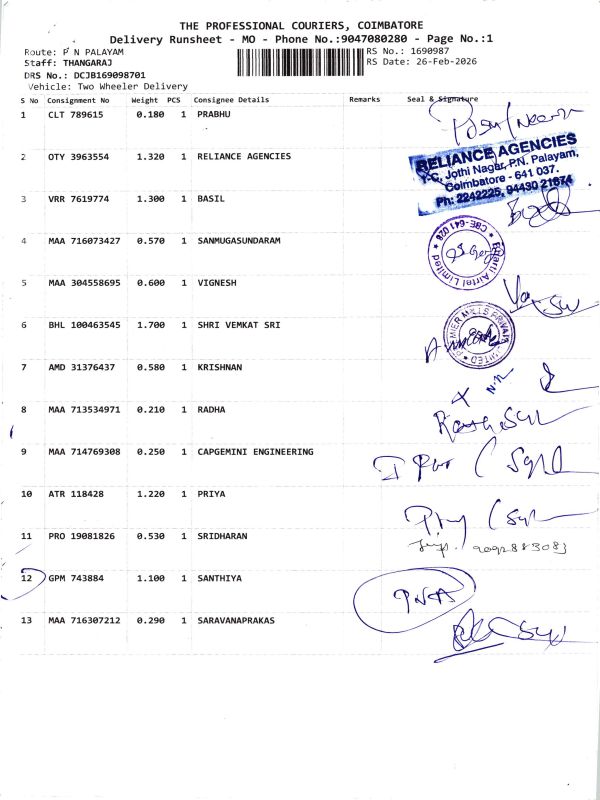 THE PROFESSIONAL COURIERS, COIMBATORE
Delivery Runsheet - MO - Phone No.:9047080280 - Page No.:1
Route: P N PALAYAM
RS No.: 1690987
Staff: THANGARAJ
RS Date: 26-Feb-2026
DRS No.: DCJB169098701
Vehicle: Two Wheeler Delivery
S No Consignment No Weight PCS Consignee Details Remarks Seal & Signature
1 CLT 789615 0.180 1 PRABHU
2 OTY 3963554 1.320 1 RELIANCE AGENCIES
RELIANCE AGENCIES
Jothi Nagar, P.N. Palayam,
Coimbatore - 641 037.
Ph: 2242225, 94430 21674
3 VRR 7619774 1.300 1 BASIL
4 MAA 716073427 0.570 1 SANMUGASUNDARAM
Bharti Airtel Limited * CBE-641 028 *
5 MAA 304558695 0.600 1 VIGNESH
6 BHL 100463545 1.700 1 SHRI VEMKAT SRI
PREMIER MILLS PRIVATE LIMITED *
7 AMD 31376437 0.580 1 KRISHNAN
8 MAA 713534971 0.210 1 RADHA
9 MAA 714769308 0.250 1 CAPGEMINI ENGINEERING
10 ATR 118428 1.220 1 PRIYA
11 PRO 19081826 0.530 1 SRIDHARAN
12 GPM 743884 1.100 1 SANTHIYA
13 MAA 716307212 0.290 1 SARAVANAPRAKAS